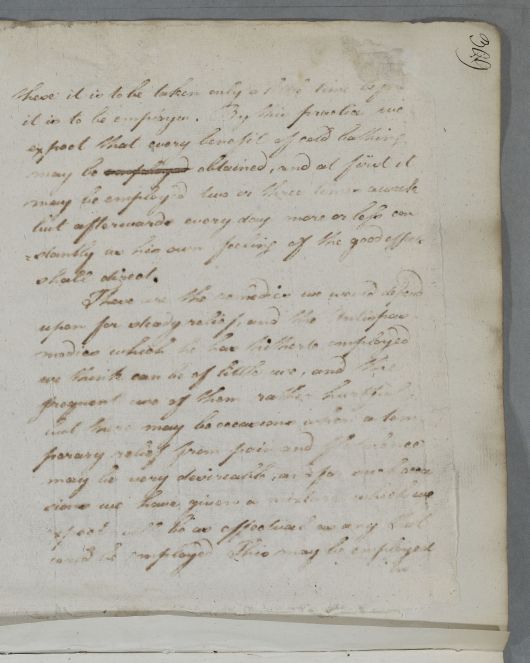 these it is to be taken only a little time before
it is to be employed. By this practice we
expect that every benefit of cold bathing
may be employed obtained, and at first it
may be employ'd two or three times a week
but afterwards every day more or less con
stantly as his own feeling of the good effects
shall direct.
These are the remedies we would depend
upon for steady relief, and the Antispas
modics which he has hitherto employed
we think can be of little use, and the
frequent use of them rather hurtful,
but there may be occasions when a tem
porary relief from pain and
may be very desireable, as for such occa
sions we have given a mixture which we
expect will be as effectual as any that
could be employed. This may be employed